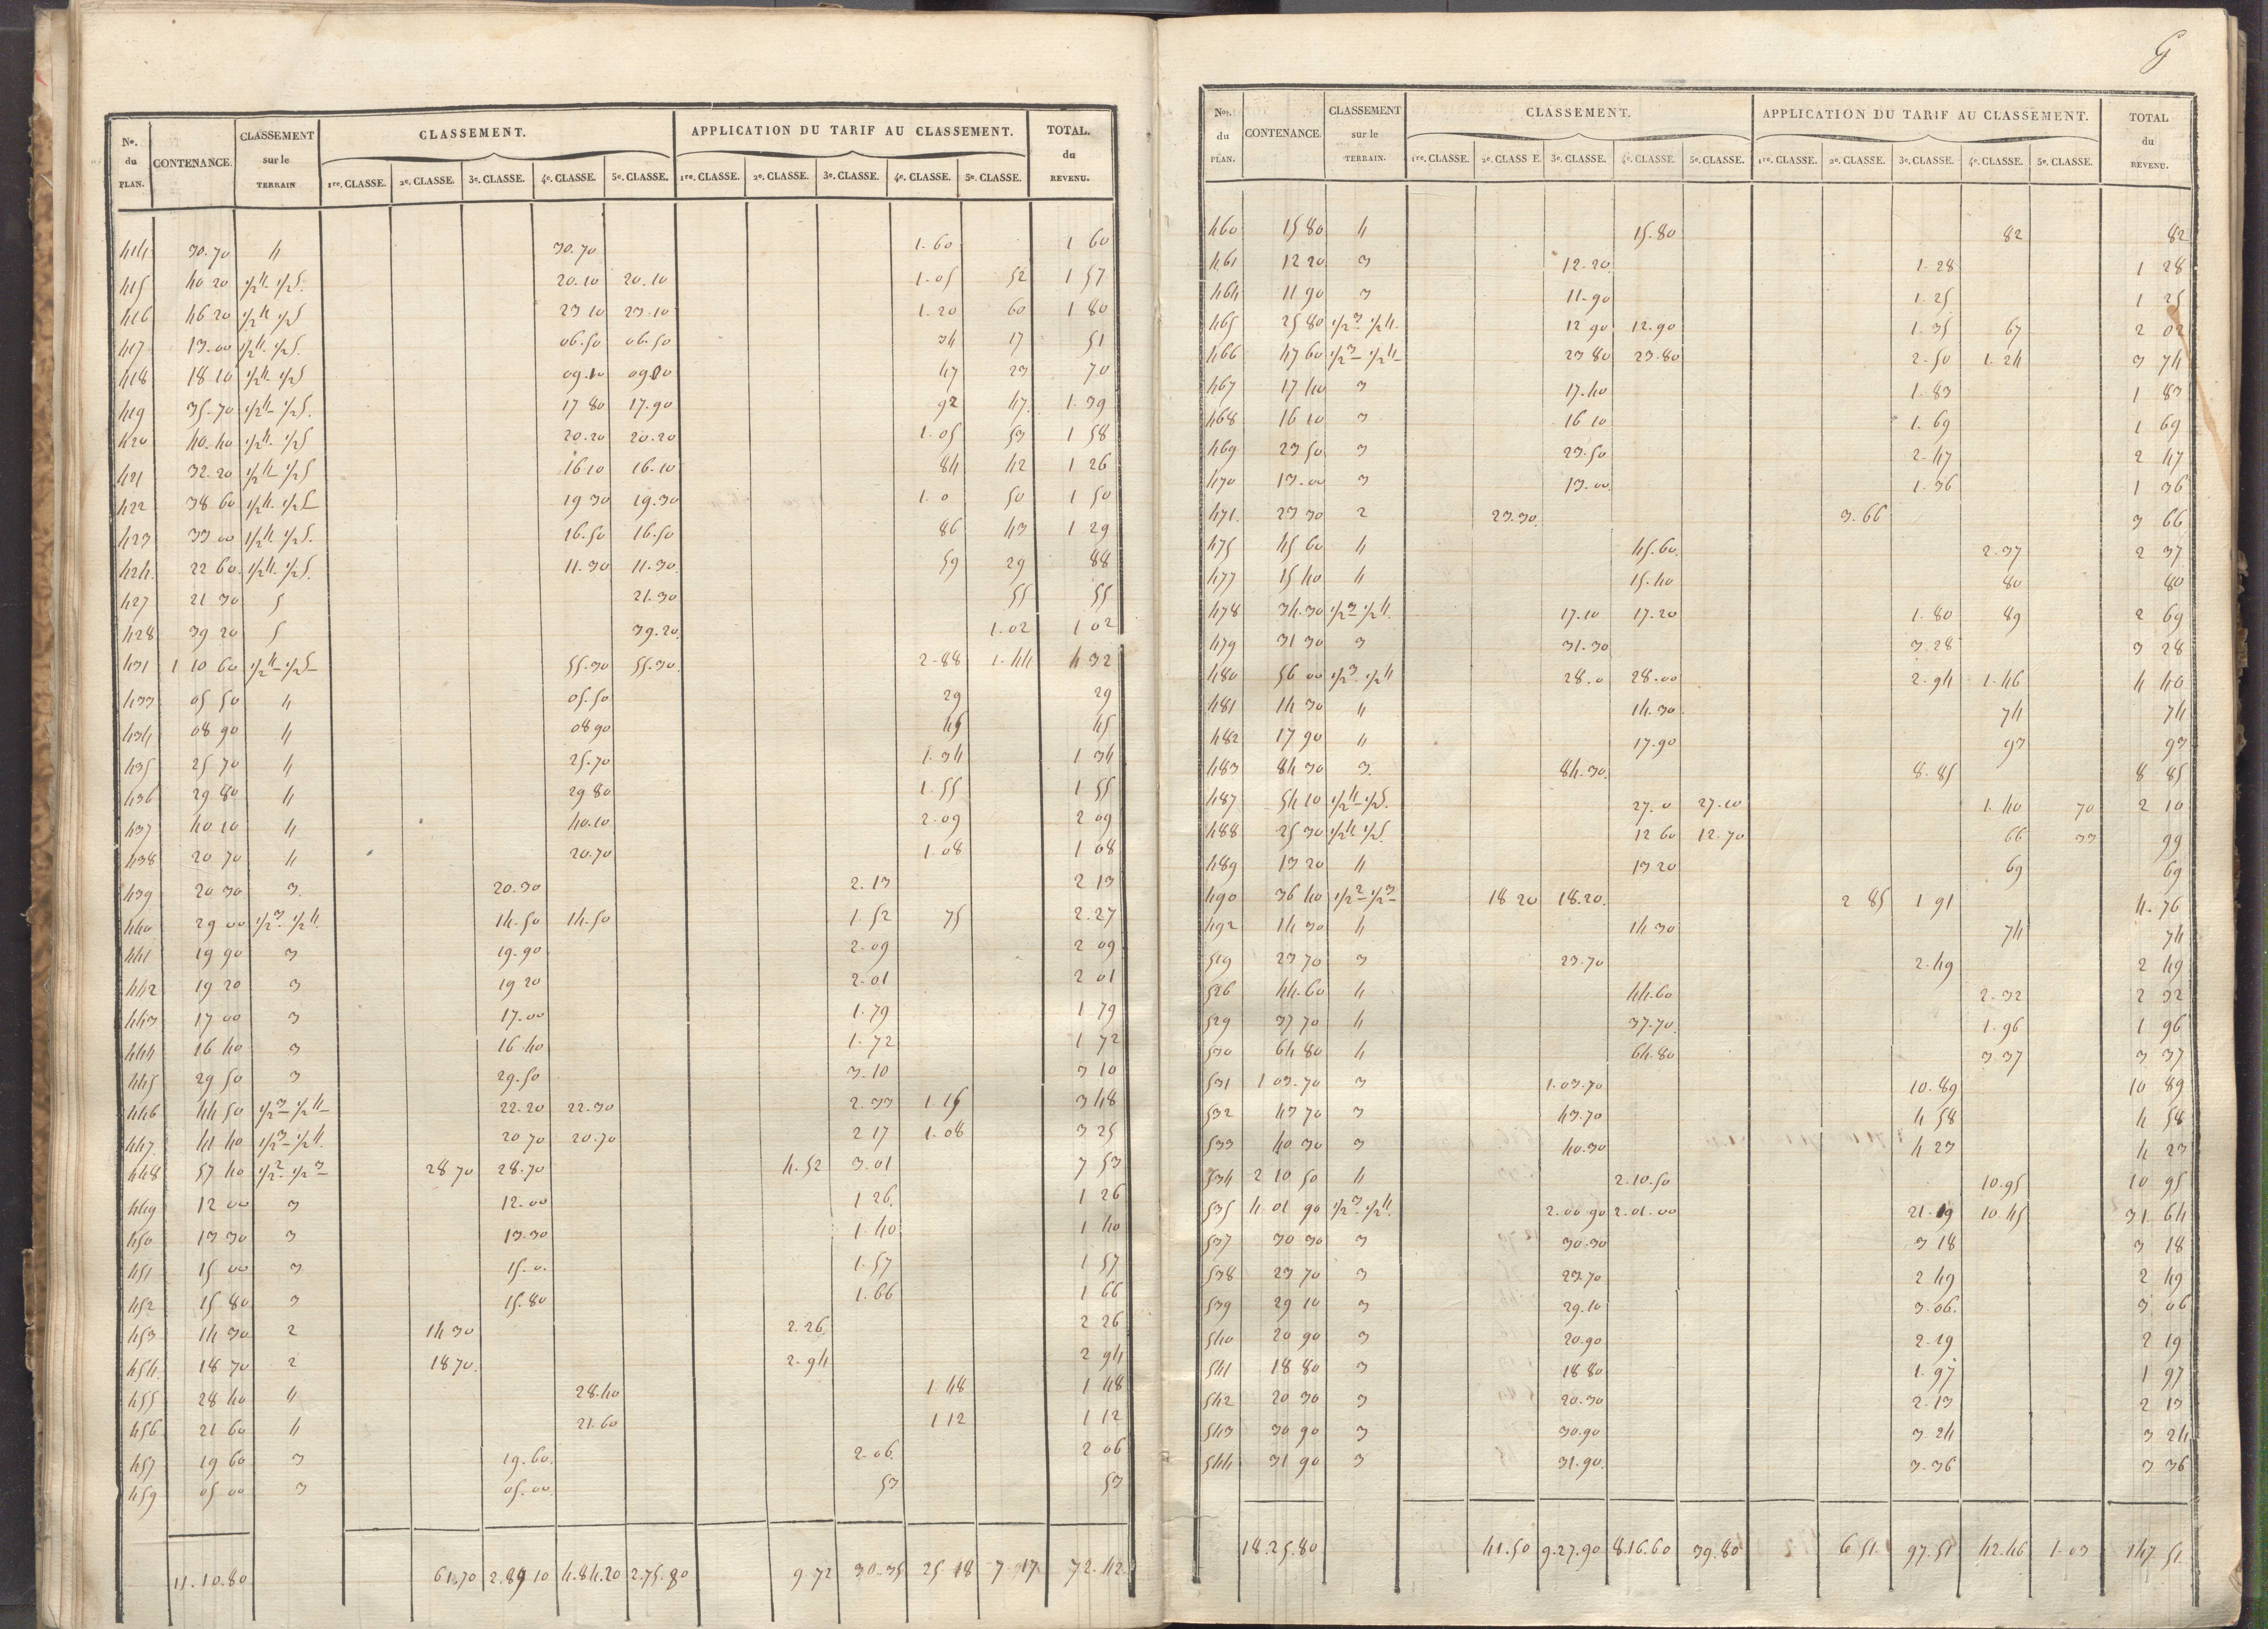 Nos. du PLAN. CONTENANCE. CLASSEMENT sur le TERRAIN CLASSEMENT. APPLICATION DU TARIF AU CLASSEMENT. TOTAL. du REVENU.
1re. CLASSE. 2e. CLASSE. 3e. CLASSE. 4e. CLASSE. 5e. CLASSE. 1re. CLASSE. 2e. CLASSE. 3e. CLASSE. 4e. CLASSE. 5e. CLASSE.
414 30.70 4 30.70 1.60 1 60
415 40 20 1/2 4. 1/2 5. 20.10 20.10 1.05 52 1 57
416 46 20 1/2 4 1/2 5 23 10 23.10 1.20 60 1 80
417 13.00 1/2 4. 1/2 5. 06.50 06.50 34 17 51
418 18 10 1/2 4. 1/2 5 09.10 09.00 47 23 70
419 35.70 1/2 4 1/2 5. 17 80 17.90 92 47. 1.39
420 40.40 1/2 4. 1/2 5 20.20 20.20 1.05 53 1 58
421 32.20 1/2 4 1/2 5 16 10 16.10 84 42 1 26
422 38 60 1/2 4. 1/2 5 19 30 19.30 1.0 50 1 50
423 33 00 1/2 4 1/2 5. 16.50 16.50 86 43 1 29
424. 22 60. 1/2 4. 1/2 5. 11.30 11.30. 59 29 88
427 21 30 5 21.30 55 55
428 39 20 5 39.20. 1.02 1 02
431 1 10 60 1/2 4 1/2 5 55.30 55.30. 2.88 1.44 4 32
433 05 50 4 05.50 29 29
434 08 90 4 08 90 45 45
435 25 70 4 25.70 1.34 1 34
436 29 80 4 29 80 1.55 1 55
437 40 10 4 40.10 2.09 2 09
438 20 70 4 20.70 1.08 1 08
439 20 30 3. 20.30 2.13 2 13
440 29 00 1/2 3. 1/2 4. 14.50 14.50 1.52 75 2.27
441 19 90 3 19.90 2.09 2 09
442 19 20 3 19 20 2.01 2 01
443 17 00 3 17.00 1.79 1 79
444 16 40 3 16 40 1.72 1 72
445 29 50 3 29.50 3.10 3 10
446 44 50 1/2 3 1/2 4 22.20 22.30 2.33 1.15 3 48
447. 41 40 1/2 3 1/2 4. 20 70 20.70 2 17 1.08 3 25
448 57 40 1/2 2. 1/2 3 28 70 28.70 4.52 3.01 7 53
449 12 00 3 12.00 1 26. 1 26
450 13 30 3 13.30 1.40 1 40
451 15 00 3 15.0. 1.57 1 57
452 15 80 3 15.80 1.66 1 66
453 14 30 2 14 30 2.26. 2 26
454. 18 70 2 18 70. 2.94 2 94
455 28 40 4 28.40 1.48 1 48
456 21 60 4 21.60 1 12 1 12
457 19 60 3 19.60. 2.06. 2 06
459 05 00 3 05.00. 53 53
11.10.80. 61.70 2.89 10 4.84.20 2.75.80 9.72 30.35 25 18 7.17 72.42
G
Nos. du PLAN. CONTENANCE. CLASSEMENT sur le TERRAIN. CLASSEMENT. APPLICATION DU TARIF AU CLASSEMENT. TOTAL du REVENU.
1re. CLASSE. 2e. CLASS E. 3e. CLASSE. 4e. CLASSE. 5e. CLASSE. 1re. CLASSE. 2e. CLASSE. 3e. CLASSE. 4e. CLASSE. 5e. CLASSE.
460 15 80 4 15.80 82 82
461 12 20 3 12.20. 1.28 1 28
464 11 90 3 11.90 1.25 1 25
465 25 80 1/2 3. 1/2 4. 12 90 12.90 1.35 67 2 02
466 47 60 1/2 3 1/2 4 23 80 23.80 2.50 1.24 3 74
467 17 40 3 17.40 1.83 1 83
468 16 10 3 16 10 1.69 1 69
469 23 50 3 23.50 2.47 2 47
470 13.00 3 13.00. 1.36 1 36
471. 23 30 2 23.30. 3.66 3 66
475 45 60 4 45.60. 2.37 2 37
477 15 40 4 15.40 80 80
478 34.30 1/2 3 1/2 4. 17.10 17.20 1.80 89 2 69
479 31 30 3 31.30 3.28 3 28
480 56 00 1/2 3. 1/2 4 28.0 28.00 2.94 1.46 4 40
481 14 30 4 14.30 74 74
482 17 90 4 17.90 93 93
483 84 30 3. 84.30. 8.85 8 85
487 54 10 1/2 4 1/2 5. 27.0 27.10 1.40 70 2 10
488 25 30 1/2 4 1/2 5. 12 60 12.70 66 33 99
489 13 20 4 13 20 69 69
490 36 40 1/2 2 1/2 3 18 20 18.20. 2 85 1 91 4.76
492 14 30 4 14 30 74 74
519 23 70 3 23.70 2.49 2 49
526 44.60 4 44.60 2.32 2 32
529 37 70 4 37.70. 1.96 1 96
530 64 80 4 64.80 3 37 3 37
531 1 03.70 3 1.03.70 10.89 10 89
532 43 70 3 43.70 4 58 4 58
533 40 30 3 40.30 4 23 4 23
534 2 10 50 4 2.10.50 10.95 10 95
535 4 01 90 1/2 3. 1/2 4. 2.00 90 2.01.00 21.19 10.45 31 64
537 30 30 3 30.30 3 18 3 18
538 23 70 3 23.70 2 49 2 49
539 29 10 3 29.10 3.06. 3 06
540 20 90 3 20.90 2.19 2 19
541 18 80 3 18 80 1.97 1 97
542 20 30 3 20.30 2.13 2 13
543 30 90 3 30.90 3 24 3 24
544 31 90 3 31.90. 3.36 3 36
18.25.80 41.50 9.27.90 8.16.60 39.80 6 51 97.51 42.46 1.03 147 51